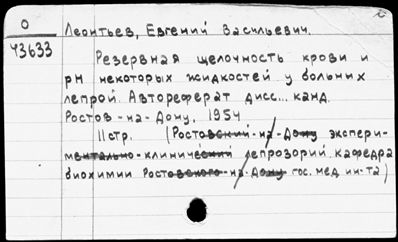 О
Ч3633
Леонтьев, Евгений Васильевич.
Резервная щелочность крови и
рН некоторых жидкостей у больных
лепрой. Автореферат дисс... канд.
Ростов-на-Дону, 1954.
11 стр. (Ростовский-на-Дону экспери-
ментально-клинический лепрозорий. кафедра
биохимии Ростовского-на-Дону гос. мед. ин-та)